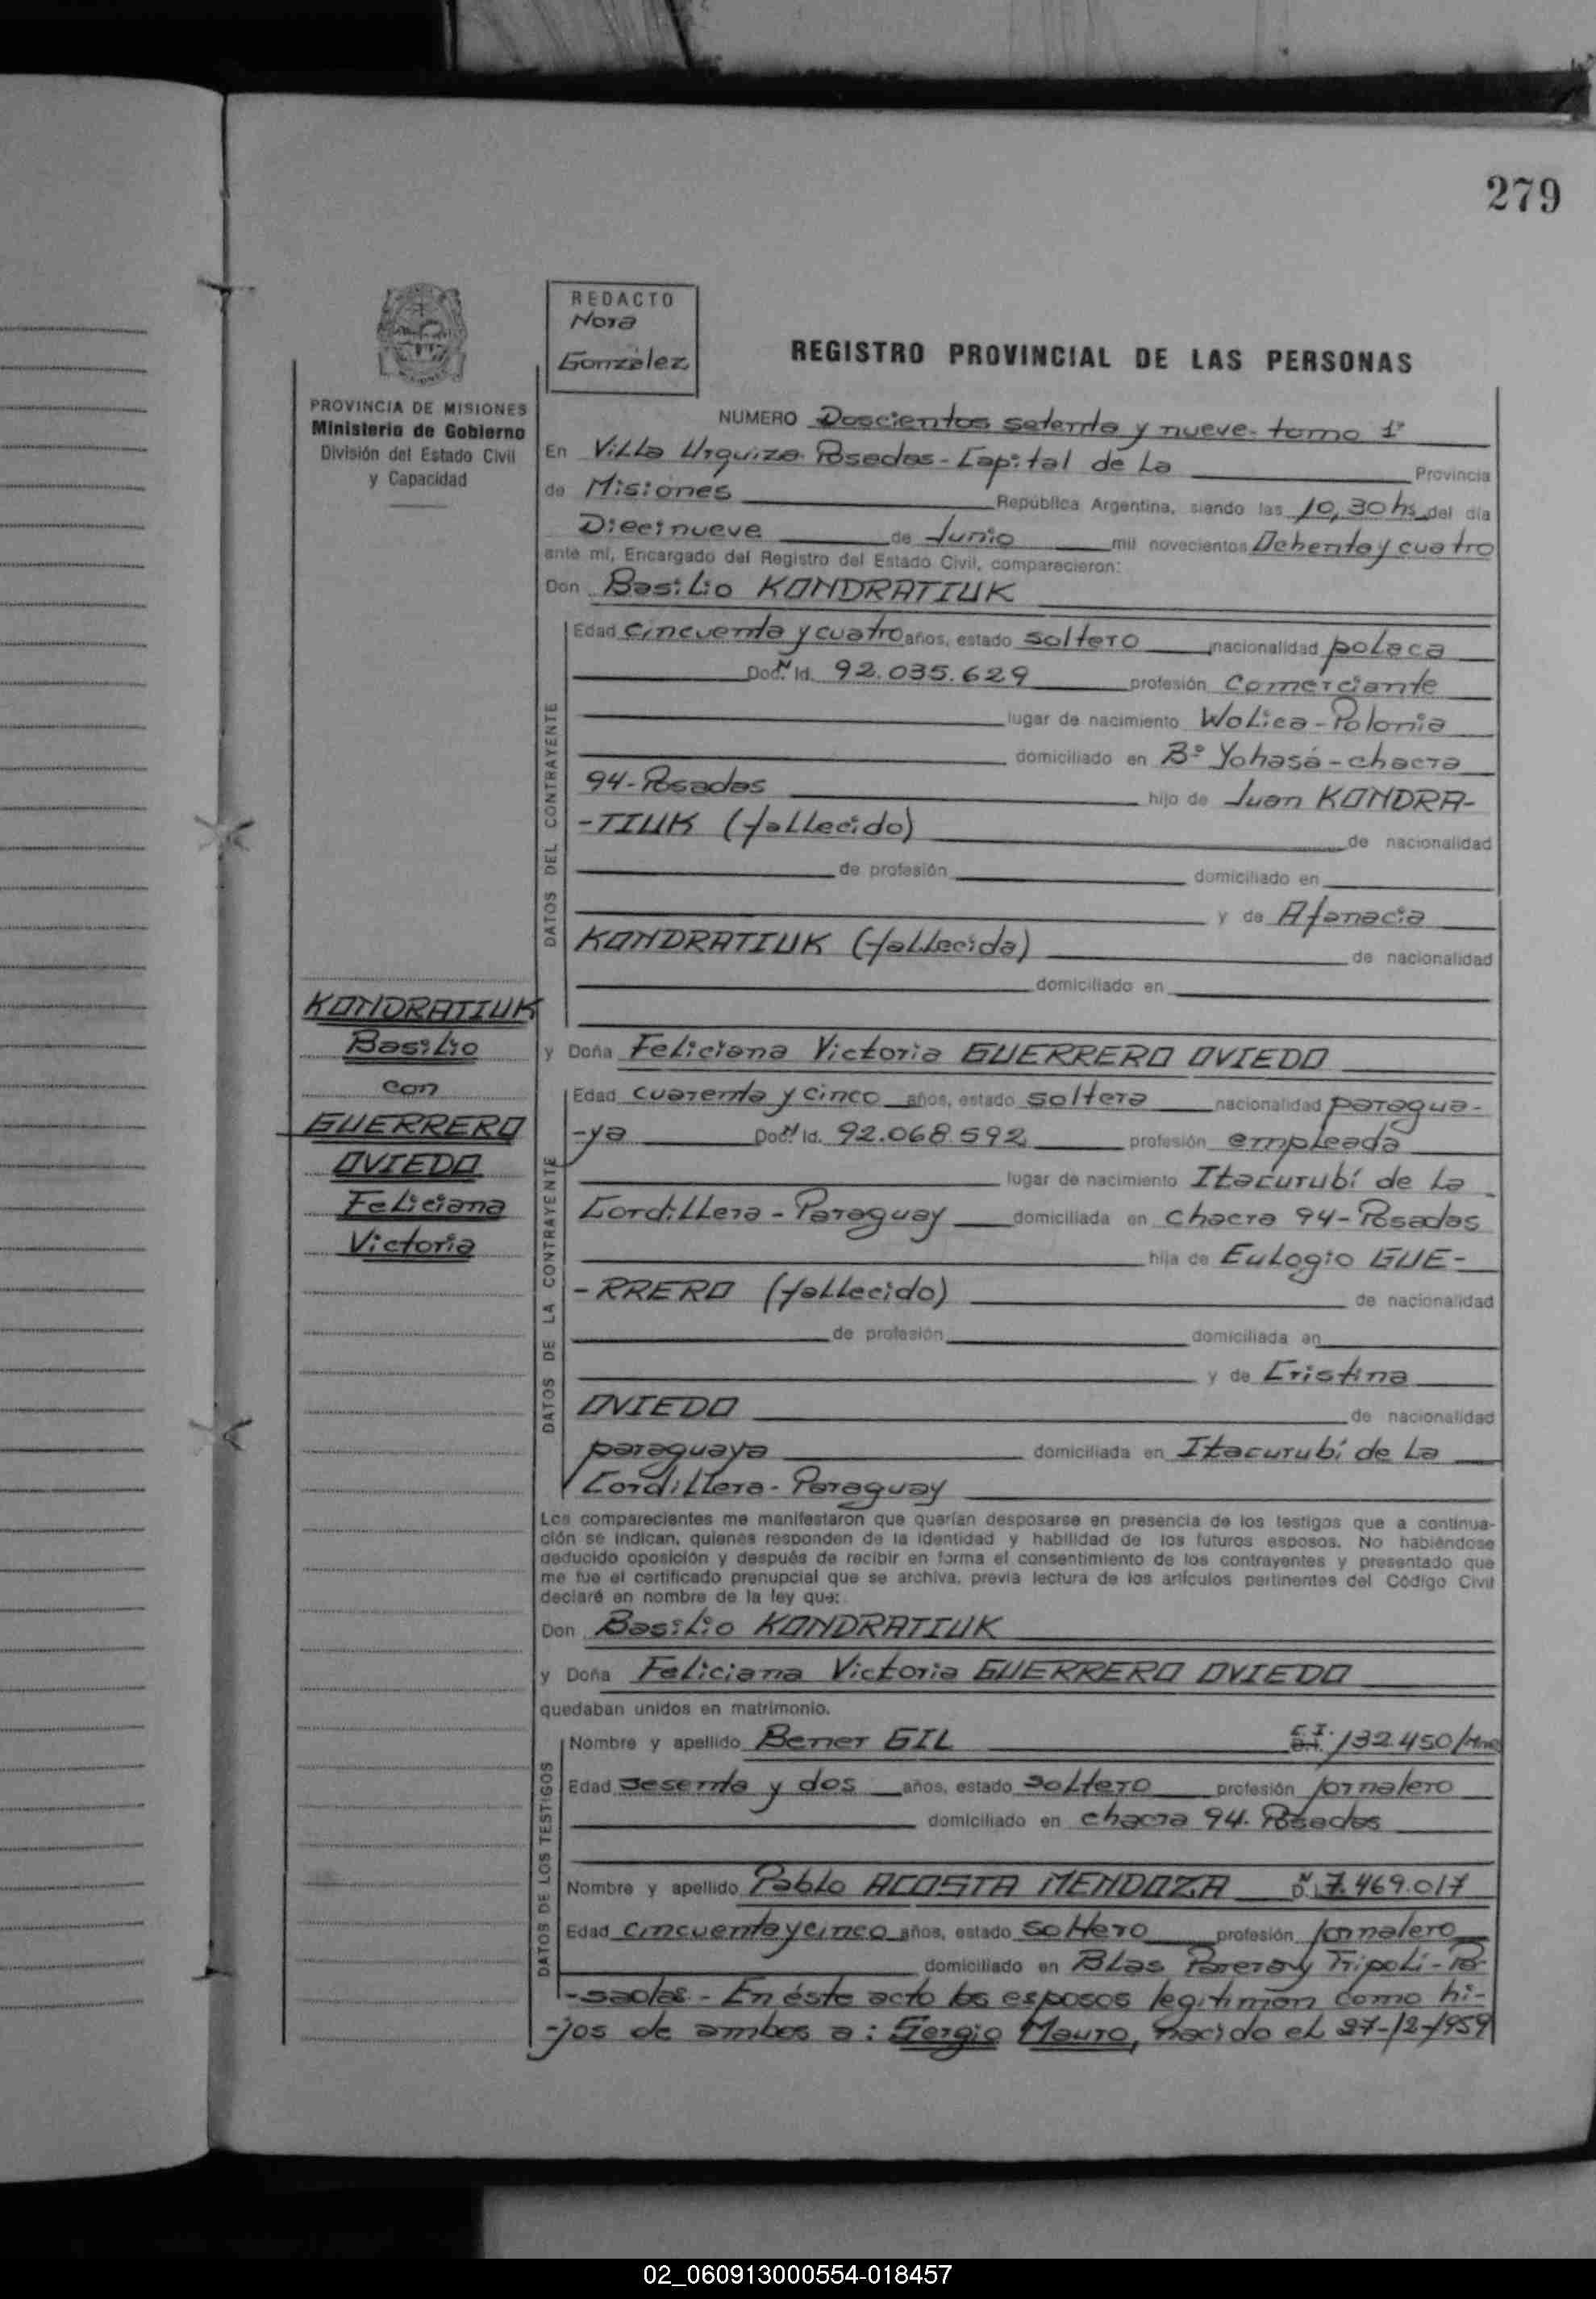 279
REDACTO
Nora
González
REGISTRO PROVINCIAL DE LAS PERSONAS
PROVINCIA DE MISIONES
Ministerio de Gobierno
División del Estado Civil
y Capacidad
NUMERO Doscientos setenta y nueve - tomo 1º
En Villa Urquiza Posadas - Capital de La Provincia
de Misiones República Argentina, siendo las 10,30 hs del día
Diecinueve de Junio mil novecientos Ochenta y cuatro
ante mí, Encargado del Registro del Estado Civil, comparecieron:
Don Basilio KONDRATIUK
DATOS DEL CONTRAYENTE
Edad cincuenta y cuatro años, estado soltero nacionalidad polaca
Doc. N Id. 92.035.629 profesión Comerciante
lugar de nacimiento Wolica - Polonia
domiciliado en Bº Yohasá - chacra
94 - Posadas hijo de Juan KONDRA-
-TIUK (fallecido) de nacionalidad
de profesión domiciliado en
y de Afanacia
KONDRATIUK (fallecida) de nacionalidad
domiciliado en
KONDRATIUK
Basilio
con
GUERRERO
OVIEDO
Feliciana
Victoria
y Doña Feliciana Victoria GUERRERO OVIEDO
DATOS DE LA CONTRAYENTE
Edad cuarenta y cinco años, estado soltera nacionalidad paragua-
-ya Doc. N Id. 92.068.592 profesión empleada
lugar de nacimiento Itacurubí de La
Cordillera - Paraguay domiciliada en chacra 94 - Posadas
hija de Eulogio GUE-
-RRERO (fallecido) de nacionalidad
de profesión domiciliada en
y de Cristina
OVIEDO de nacionalidad
paraguaya domiciliada en Itacurubí de La
Cordillera - Paraguay
Los comparecientes me manifestaron que querían desposarse en presencia de los testigos que a continua-
ción se indican, quienes responden de la identidad y habilidad de los futuros esposos. No habiéndose
deducido oposición y después de recibir en forma el consentimiento de los contrayentes y presentado que
me fue el certificado prenupcial que se archiva, previa lectura de los artículos pertinentes del Código Civil
declaré en nombre de la ley que:
Don Basilio KONDRATIUK
y Doña Feliciana Victoria GUERRERO OVIEDO
quedaban unidos en matrimonio.
DATOS DE LOS TESTIGOS
Nombre y apellido Bener GIL C.I. 132.450/Mnes
Edad sesenta y dos años, estado soltero profesión jornalero
domiciliado en chacra 94 - Posadas
Nombre y apellido Pablo ACOSTA MENDOZA 7.469.017
Edad cincuenta y cinco años, estado soltero profesión jornalero
domiciliado en Blas Parera y Trípoli - Po-
-sadas - En éste acto los esposos legitiman como hi-
-jos de ambos a: Sergio Mauro, nacido el 27-12-1959
02_060913000554-018457